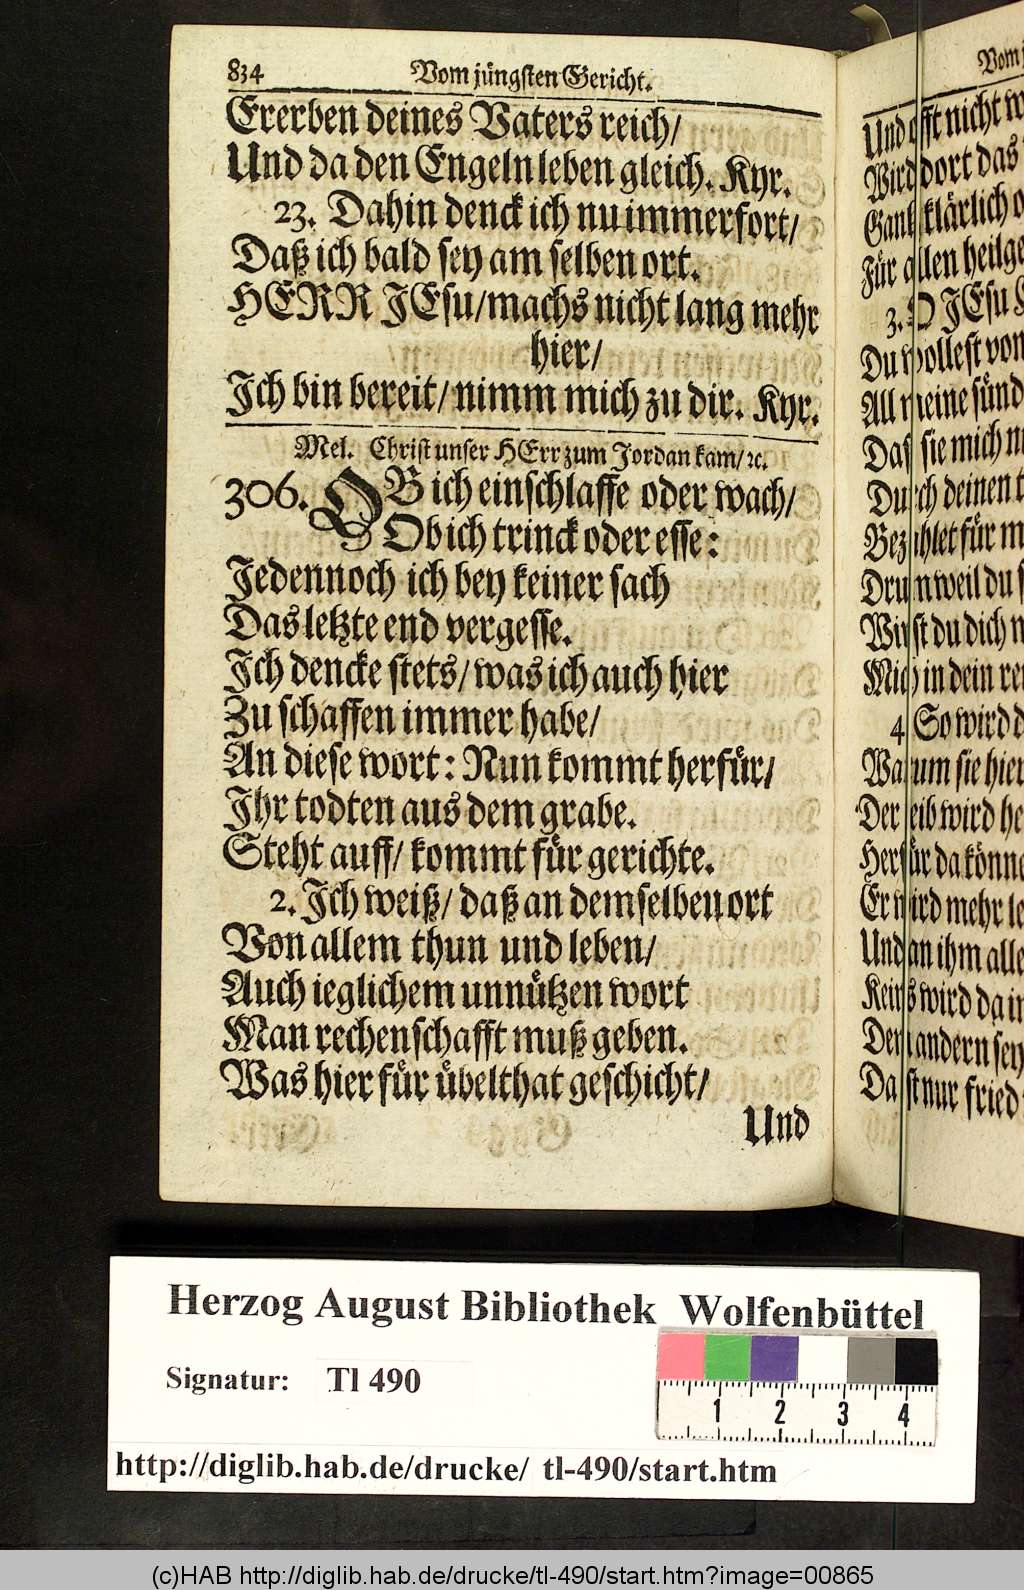 834 Vom jüngsten Gericht.
Ererben deines Vaters reich/
Und da den Engeln leben gleich. Kyr.
23. Dahin denck ich nu immerfort/
Daß ich bald sey am selben ort.
HERR JEsu/machs nicht lang mehr
hier/
Ich bin bereit/ nimm mich zu dir. Kyr.
Mel. Christ unser HErr zum Jordan kam/ ꝛc.
306. OB ich einschlaffe oder wach/
Ob ich trinck oder esse:
Jedennoch ich bey keiner sach
Das letzte end vergesse.
Ich dencke stets/ was ich auch hier
Zu schaffen immer habe/
An diese wort: Nun kommt herfür/
Ihr todten aus dem grabe.
Steht auff/ kommt für gerichte.
2. Ich weiß/ daß an demselben ort
Von allem thun und leben/
Auch ieglichem unnützen wort
Man rechenschafft muß geben.
Was hier für übelthat geschicht/
Und
Vom
Und offt nicht
Wird dort das
Gantz klärlich
Für allen heilge
3. O JEsu
Du wollest von
All meine sünd
Das sie mich
Durch deinen
Bezahlet für
Drum weil du
Wirst du dich
Mich in dein
4. So wird
Warum sie hier
Der leib wird
Herfür da könne
Er wird mehr
Und an ihm alle
Keins wird da
Dem andern sey
Da ist nur fried
Herzog August Bibliothek Wolfenbüttel
Signatur: Tl 490
1 2 3 4
http://diglib.hab.de/drucke/ tl-490/start.htm
(c)HAB http://diglib.hab.de/drucke/tl-490/start.htm?image=00865